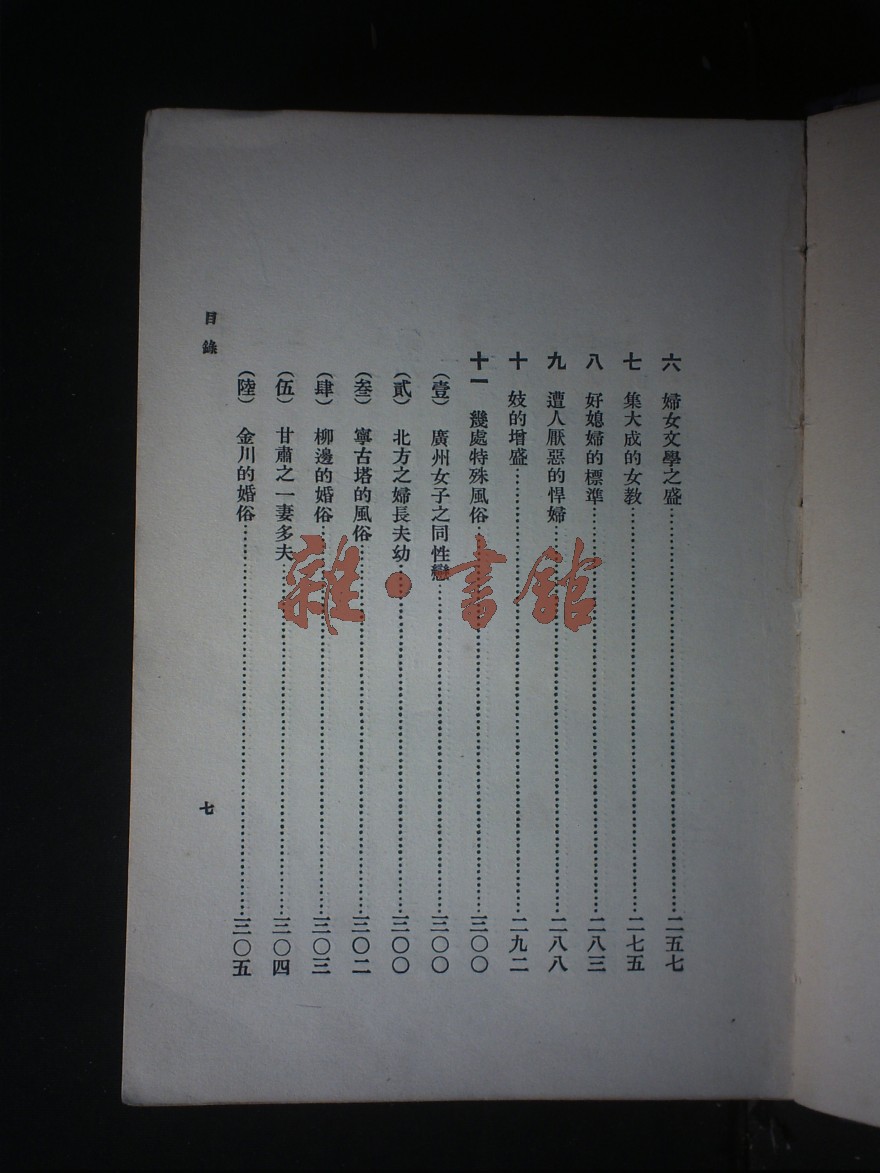 六　婦女文學之盛………二五七
七　集大成的女教………二七五
八　好媳婦的標準………二八三
九　遭人厭惡的悍婦………二八八
十　妓的增盛………二九二
十一　幾處特殊風俗………三〇〇
（壹）廣州女子之同性戀………三〇〇
（貳）北方之婦長夫幼………三〇〇
（叁）寧古塔的風俗………三〇二
（肆）柳邊的婚俗………三〇三
（伍）甘肅之一妻多夫………三〇四
（陸）金川的婚俗………三〇五
目錄
七
雜·書館